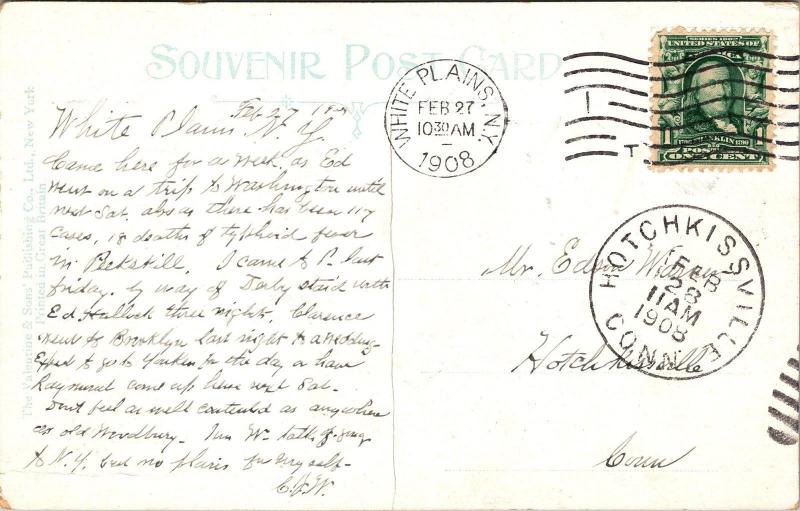 SOUVENIR POST CARD
The Valentine & Sons' Publishing Co., Ltd., New York
Printed in Great Britain
Feb 27
White Plains N.Y.
Came here for a week, as Ed
went on a trip to Washington until
next Sat. also as there has been 117
cases, 18 deaths of typhoid fever
in Peekskill. I came to P. last
Friday, by way of Derby staid with
Ed Hallock three nights. Clarence
went to Brooklyn last night to a wedding
Expect to go to Yonkers for the day or have
Raymond come up here next Sat-
Dont feel as well contented as anywhere
as old Woodbury- W- talks of going
to N.Y. but no plans for myself-
WHITE PLAINS, N.Y.
FEB 27
10 30 AM
1908
1
SERIES 1902
UNITED STATES OF AMERICA
FRANKLIN
POSTAGE
ONE CENT
Mr. Edson
Hotchkissville
Conn
HOTCHKISSVILLE
FEB
28
11 AM
1908
CONN